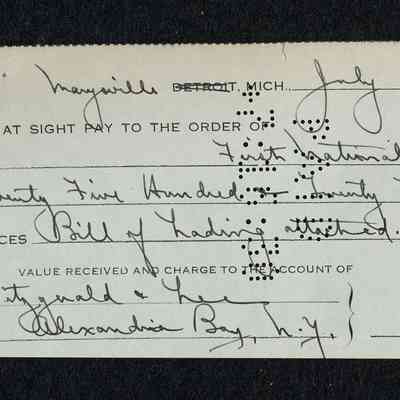 Marysville DETROIT, MICH., July
AT SIGHT PAY TO THE ORDER OF
First National
wenty Five Hundred & Twenty
CES Bill of Lading attached.
VALUE RECEIVED AND CHARGE TO THE ACCOUNT OF
itzgerald & Lee
Alexandria Bay, N.Y.